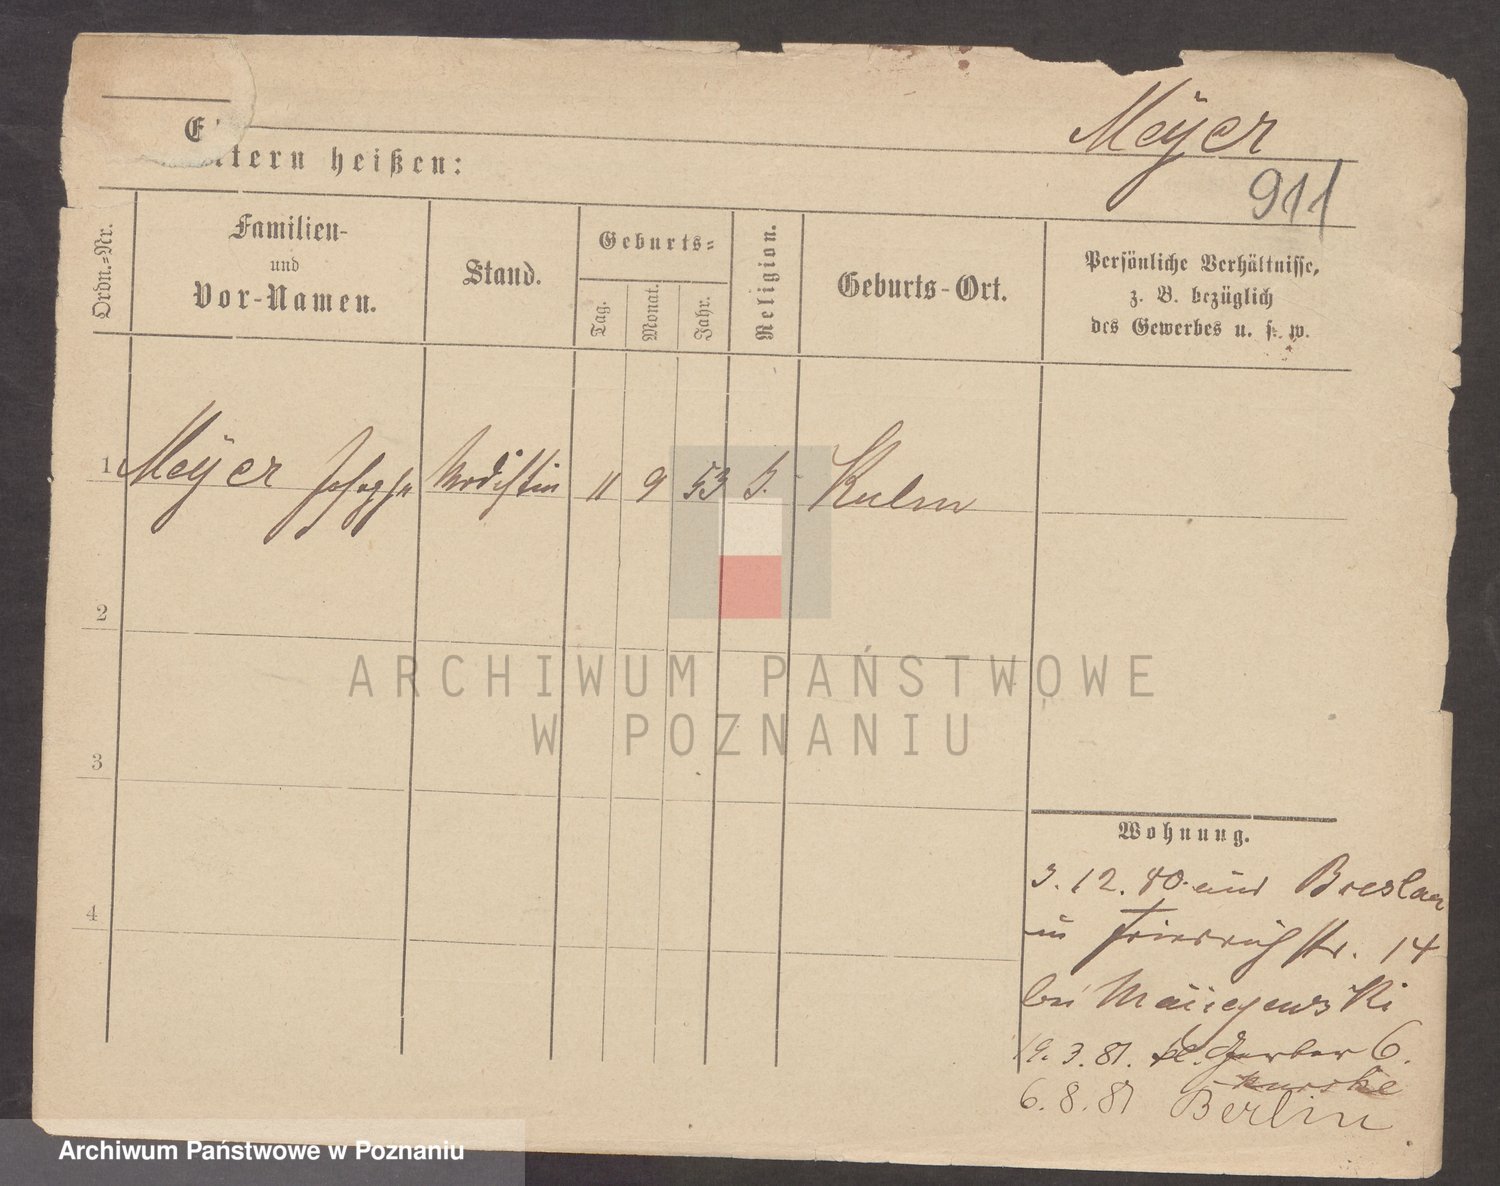 Meÿer
911
Eltern heißen:
Ordn.-Nr.
Familien-
und
Vor-Namen.
Stand.
Geburts-
Tag.
Monat.
Jahr.
Religion.
Geburts-Ort.
Persönliche Verhältnisse,
z. B. bezüglich
des Gewerbes u. s. w.
1 Meÿer Modistin 11 9 53 Kulm
2
3
4
ARCHIWUM PAŃSTWOWE
W POZNANIU
Wohnung.
3. 12. 80. aus Breslau
in Friedrichstr. 14
bei
19. 3. 81. kl. Gerber 6.
6. 8. 81 Berlin
Archiwum Państwowe w Poznaniu